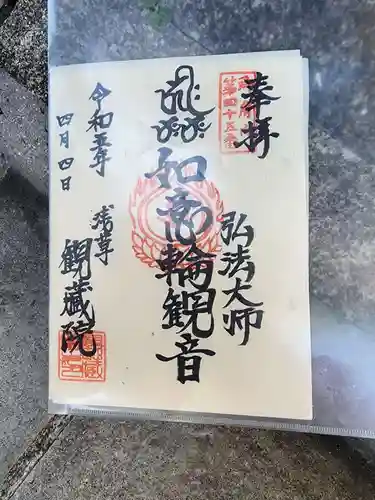 奉拝
第四十五番
弘法大師
如意輪観音
令和五年
四月四日
浅草
観蔵院